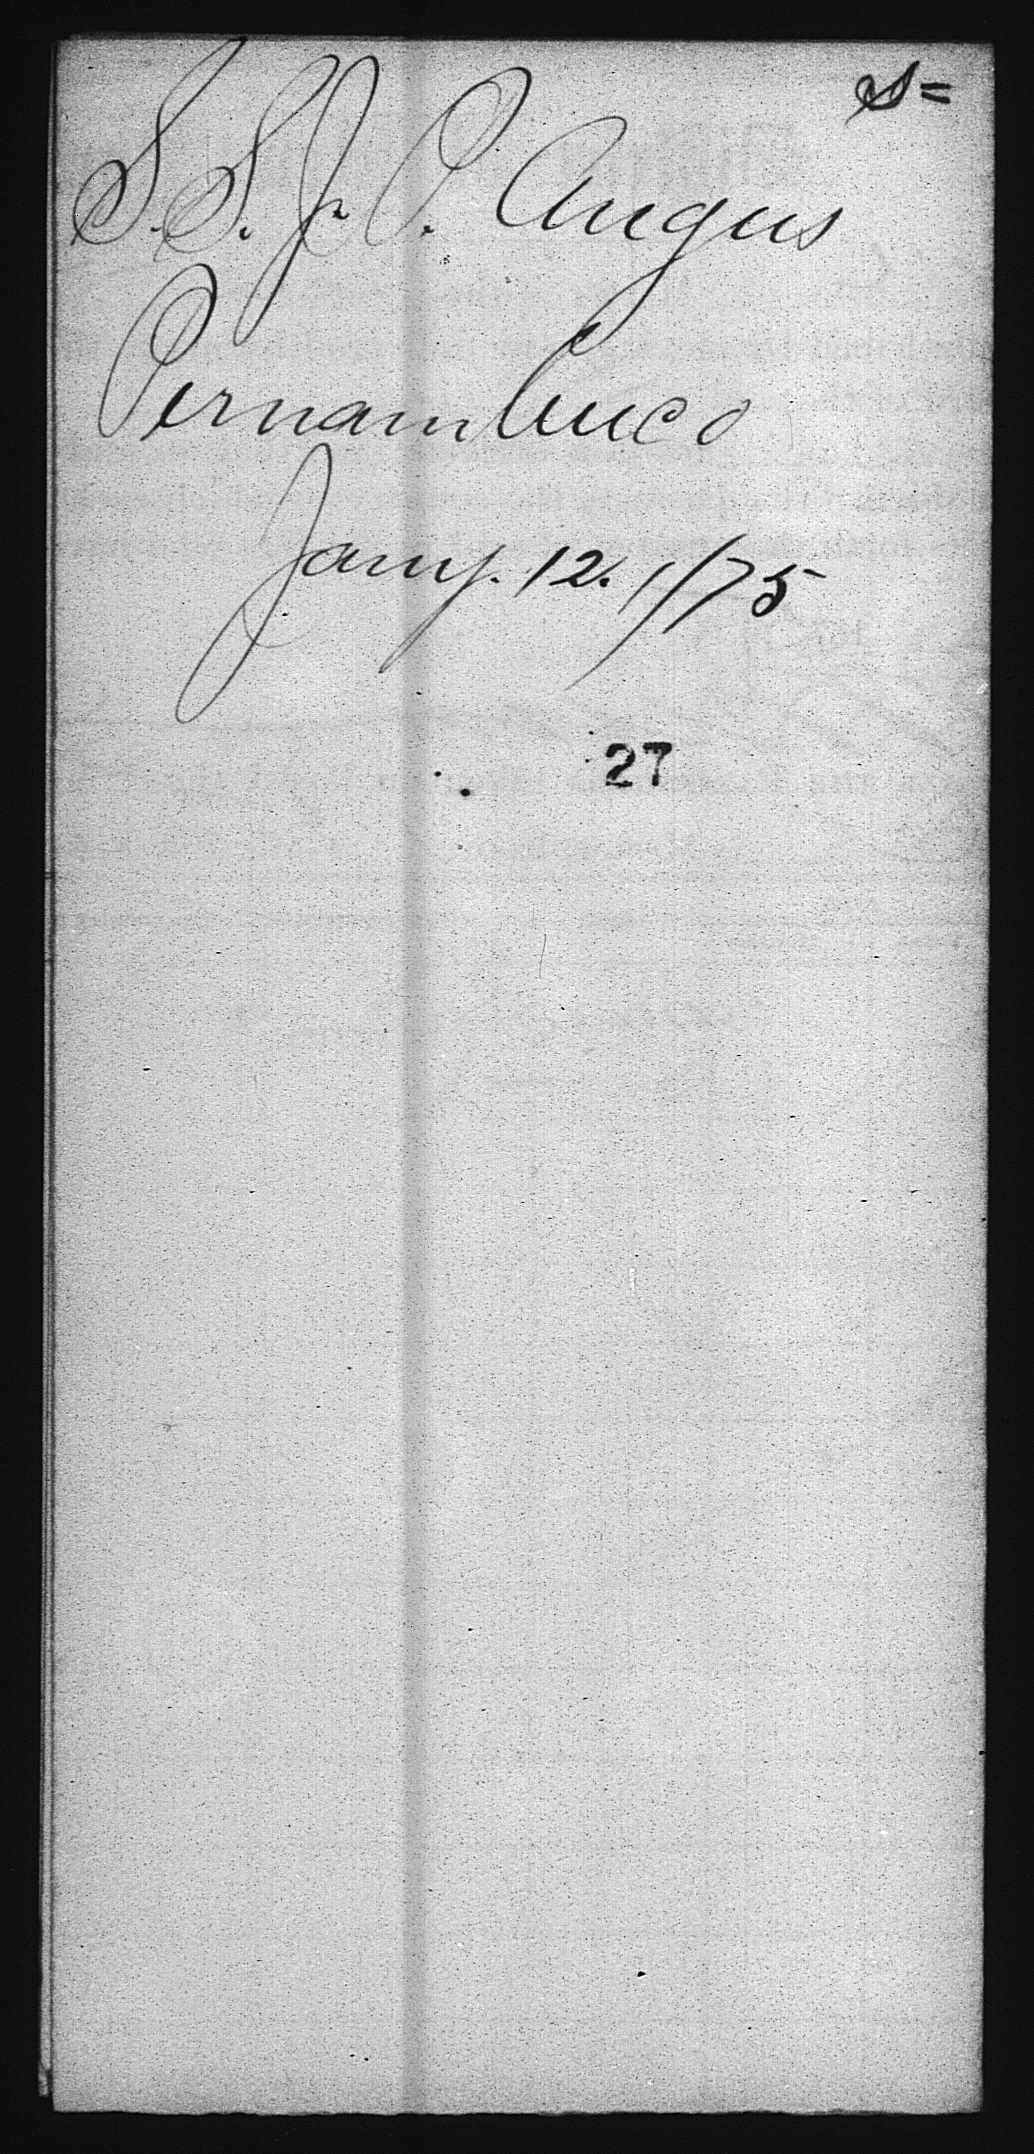 S=
S. S. J. P. Angus
Pernambuco
Jany. 12. 1/75
27